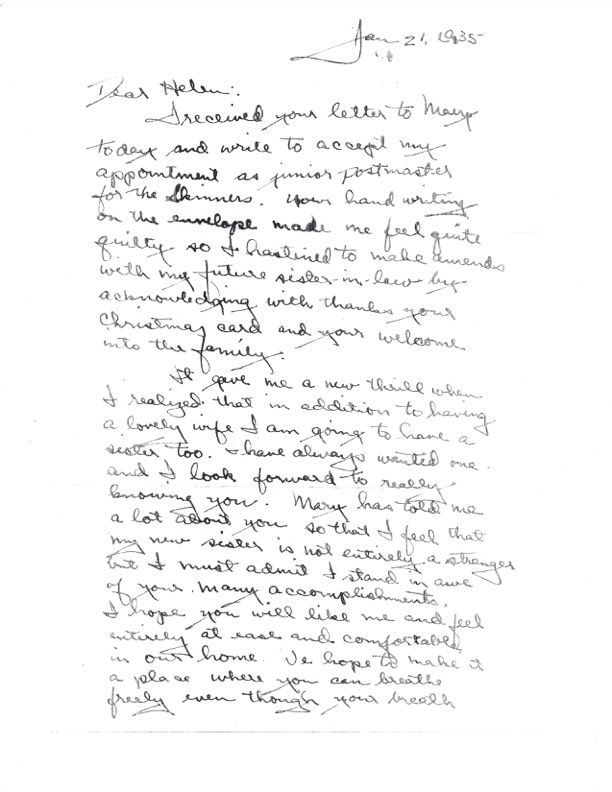 Jan 21, 1935
Dear Helen:
I received your letter to Mary
today and write to accept my
appointment as junior postmaster
for the Skinners. Your hand writing
on the envelope made me feel quite
guilty so I hastined to make amends
with my future sister-in-law by
acknowledging with thanks your
Christmas card and your welcome
into the family.
It gave me a new thrill when
I realized that in addition to having
a lovely wife I am going to have a
sister too. I have always wanted one
and I look forward to really
knowing you. Mary has told me
a lot about you so that I feel that
my new sister is not entirely a stranger
but I must admit I stand in awe
of your many accomplishments.
I hope you will like me and feel
entirely at ease and comfortable
in our home. We hope to make it
a place where you can breathe
freely even though your breath